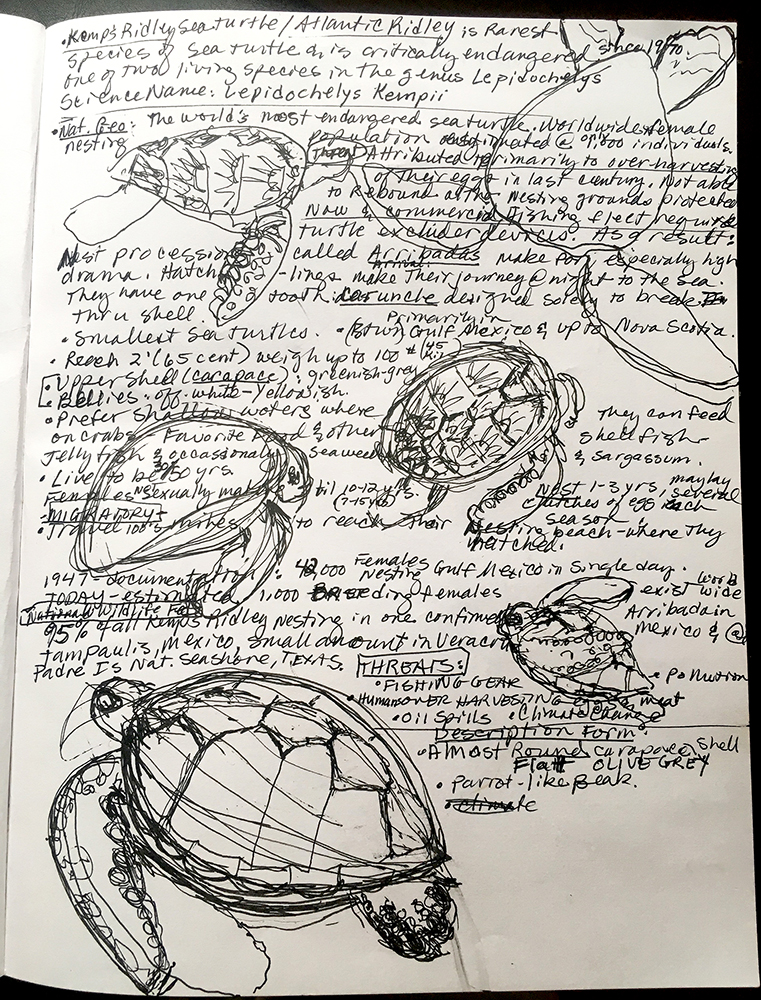 • Kemp's Ridley Sea turtle / Atlantic Ridley is Rarest
species of sea turtle & is critically endangered since 1970.
one of two living species in the genus Lepidochelys
Science Name: Lepidochelys Kempii
• Nat. Geo: The world's most endangered sea turtle. Worldwide female
nesting population estimated @ 1,000 individuals.
Threat Attributed primarily to over-harvesting
of their eggs in last century. Not able
to Rebound as the Nesting grounds protected
Now & commercial Fishing fleet require
turtle excluder devices. As a result:
Nest processions called Arribadas make for especially high
drama. Hatch-lings make their journey @ night to the sea.
They have one tooth: caruncle designed solely to break
thru shell. Primarily in
• Smallest Sea turtles. • Gulf Mexico & up to Nova Scotia.
• Reach 2' (65 cent) weigh up to 100 # (45
• Upper Shell (carapace): greenish-grey
• Bellies: off-white-yellowish.
• Prefer shallow waters where They can feed
on crabs Favorite Food & other shellfish-
Jellyfish & occassionally seaweed & sargassum.
• Live to be 30/50 yrs.
Females sexually mat til 10-12 yrs. Nest 1-3 yrs, may lay several
(7-15 yrs) clutches of eggs each
MIGRATORY- season.
• Travel 100's miles to reach their Nesting beach-where they
hatched.
1947-documentation: 42,000 Females Nesting Gulf Mexico in Single day.
TODAY-estimated 1,000 Breeding females exist world wide
National Wildlife Fed
95% of all Kemp's Ridley Nesting in one confirmed Arribada in
Tampaulis, Mexico, small amount in Veracruz Mexico & @
Padre Is Nat. Seashore, TEXAS. THREATS:
• FISHING GEAR • Pollution
• Human OVER HARVESTING eggs & meat
• Oil Spills • Climate Change
Description Form:
• Almost Round carapace. Shell
Flat OLIVE GREY
• Parrot-like Beak.
• climate